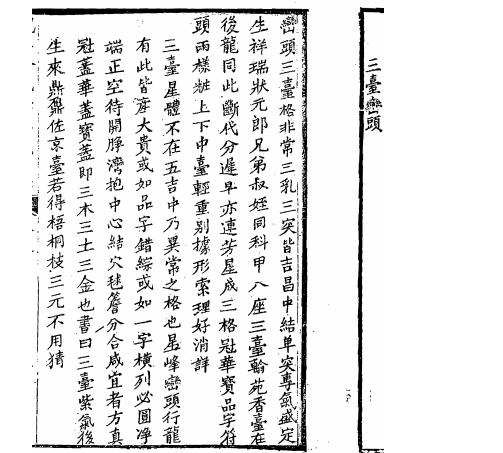 三臺巒頭
巒頭三臺格非常三乳三突皆吉昌中結單突專氣盛定
生祥瑞狀元郎兄弟叔姪同科甲八座三臺翰苑香臺在
後龍同此斷代分遲早亦連芳星成三格冠華寶品字符
頭兩樣粧上下中臺輕重別據形索理好消詳
三臺星體不在五吉中乃異常之格也星峰巒頭行龍
有此皆產大貴或如品字錯綜或如一字橫列必圓淨
端正空待開睜灣抱中心結穴毬簷分合咸宜者方真
冠蓋華蓋寶蓋即三木三土三金也書曰三臺紫氣後
生來鼎鼐佐京臺若得梧桐枝三元不用猜